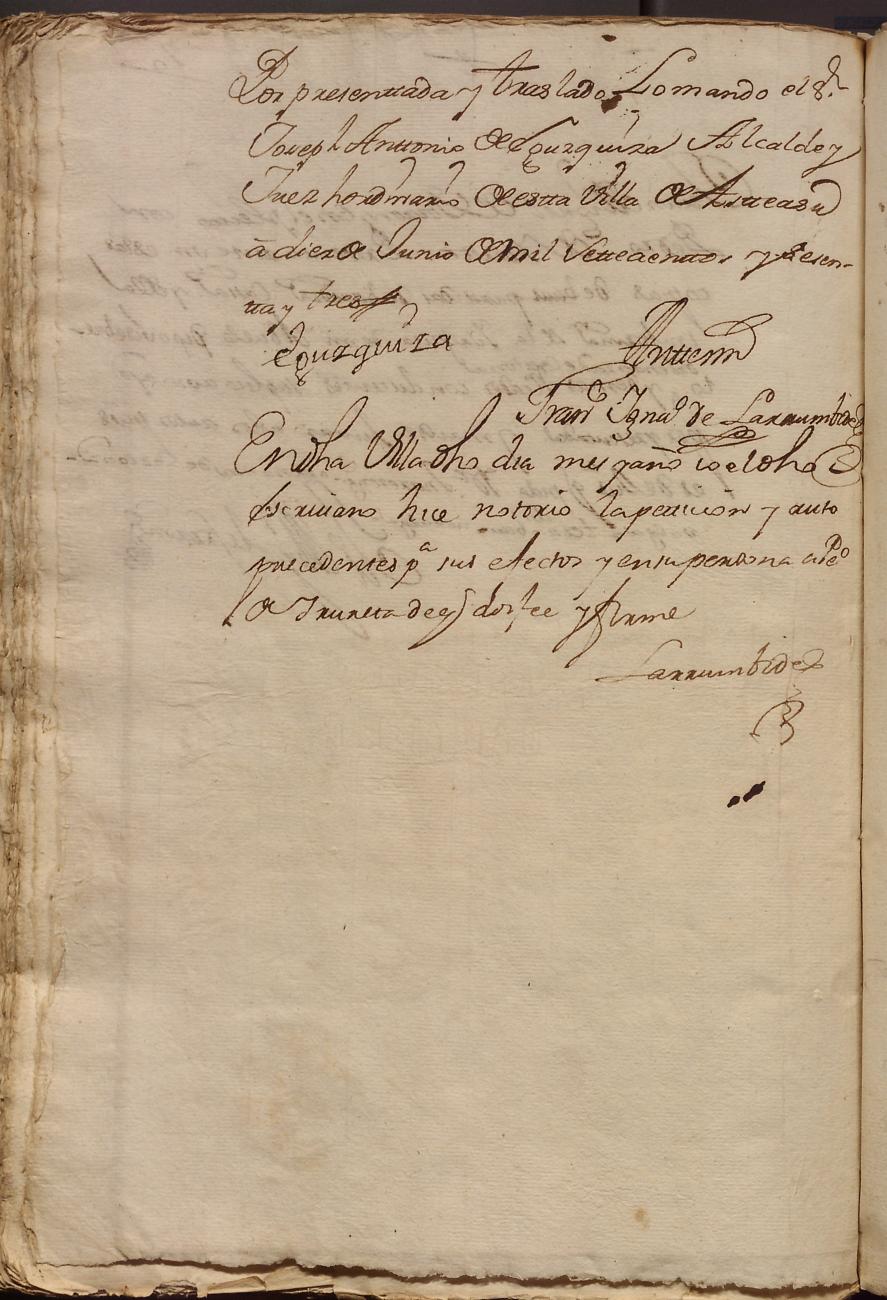 Por presenttada y traslado, Lo mando el S.r
Joseph Anttonio de Eguzquiza Alcalde y
Juez hordinario de estta Villa de Astteasu
â diez de Junio de mil Settecienttos y sesen-
tta y tres
Eguzquiza Antte mi
Fran.co Igna.o de Larrumbide
En dha Villa dho dia mes y año io el dho
Escrivano hice notorio la peticion y auto
precedentes p.a sus efectos y en su persona a Pe.o
de Irureta de q doi fee y firme
Larrumbide